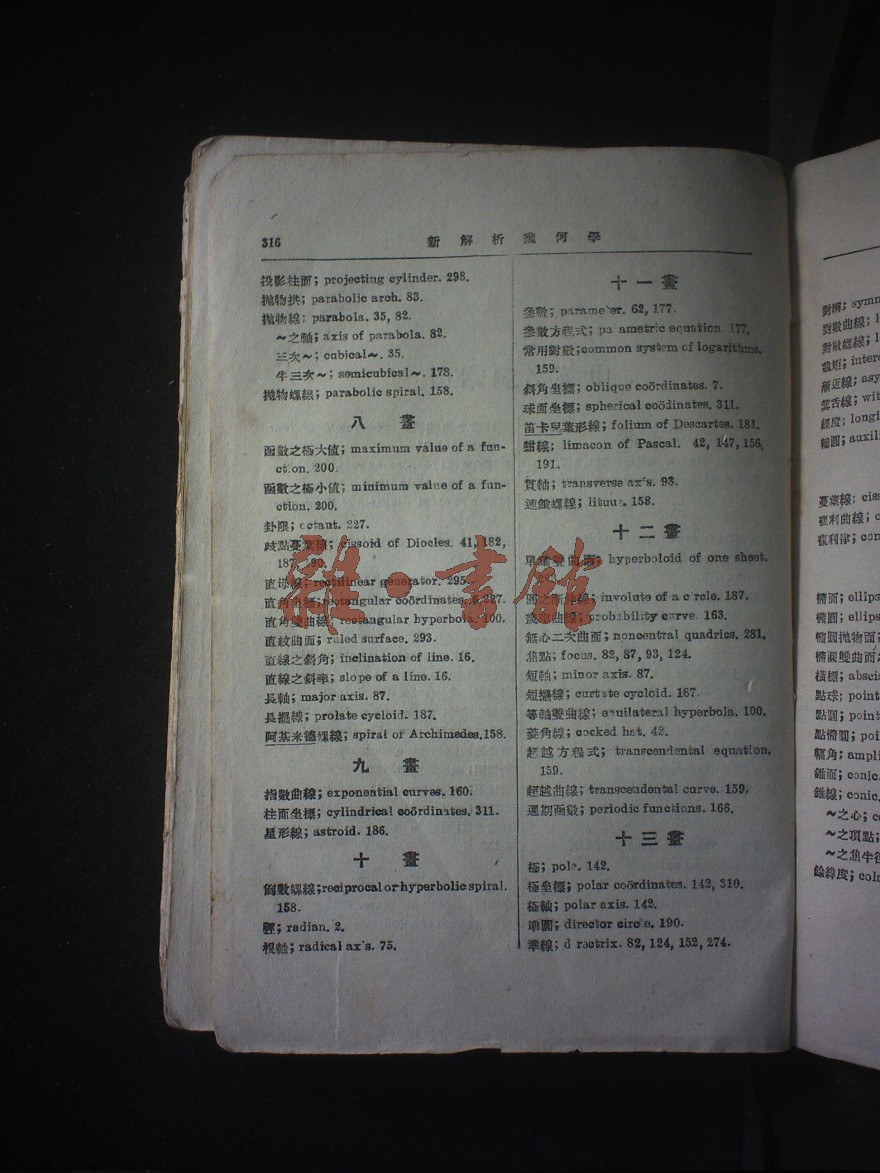 316
新解析幾何學
投影柱面; projecting cylinder. 298.
拋物拱; parabolic arch. 83.
拋物線; parabola. 35, 82.
~之軸; axis of parabola. 82.
三次~; cubical~. 35.
半三次~; semicubical~. 178.
拋物螺線; parabolic spiral. 158.
八畫
函數之極大值; maximum value of a fun-
ction. 200.
函數之極小值; minimum value of a fun-
ction. 200.
卦限; octant. 227.
歧點蔓葉線; cissoid of Diocles. 41, 182,
187, 190.
直母線; rectilinear generator. 295.
直角坐標; rectangular coördinates. 6, 227.
直角雙曲線; rectangular hyperbola. 100.
直紋曲面; ruled surface. 293.
直線之斜角; inclination of line. 16.
直線之斜率; slope of a line. 16.
長軸; major axis. 87.
長擺線; prolate cycloid. 187.
阿基米德螺線; spiral of Archimedes. 158.
九畫
指數曲線; exponential curves. 160.
柱面坐標; cylindrical coördinates. 311.
星形線; astroid. 186.
十畫
倒數螺線; reciprocal or hyperbolic spiral.
158.
radian. 2.
根軸; radical ax's. 75.
十一畫
參數; parameter. 62, 177.
參數方程式; pa ametric equation 177.
常用對數; common system of logarithms.
159.
斜角坐標; oblique coördinates. 7.
球面坐標; spherical coödinates. 311.
笛卡兒葉形線; folium of Descartes. 181.
蚶線; limacon of Pascal. 42, 147, 156,
191.
貫軸; transverse ax's. 93.
連鎖螺線; lituu . 158.
十二畫
單葉雙曲面; hyperboloid of one sheet.
圓之漸伸線; involute of a c rcle. 187.
probability curve. 163.
無心二次曲面; noncentral quadrics. 281.
焦點; focus. 82, 87, 93, 124.
短軸; minor axis. 87.
短擺線; curtate cycloid. 187.
等軸雙曲線; equilateral hyperbola. 100.
菱角線; cocked hat. 42.
超越方程式; transcendental equation.
159.
超越曲線; transcendental curve. 159.
週期函數; periodic functions. 166.
十三畫
極; pole. 142.
極坐標; polar coördinates. 142, 310.
極軸; polar axis. 142.
準圓; director circle. 190.
準線; d rectrix. 82, 124, 152, 274.
雜·書館
對稱; symm
對數曲線; l
對數螺線; l
截距; interc
漸近線; asy
箕舌線; wit
經度; longi
輔圓; auxil
蔓葉線; ciss
橢面; ellips
橢圓; ellips
橢圓拋物面;
橢圓雙曲面
橫標; absci
點球; point
點圓; point
點橢圓; poi
幅角; ampli
錐面; conic.
錐線; conic.
~之心; c
~之頂點;
~之焦半徑
餘緯度; cola